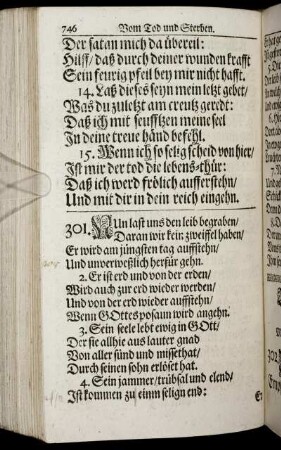 746 Vom Tod und Sterben.
Der satan mich da übereil:
Hilff/ daß durch deiner wunden krafft
Sein feurig pfeil bey mir nicht hafft.
14. Laß dieses seyn mein letzt gebet/
Was du zuletzt am creutz geredt:
Daß ich mit seufftzen meine seel
In deine treue händ befehl.
15. Wenn ich so selig scheid von hier/
Ist mir der tod die lebens-thür:
Daß ich werd frölich aufferstehn/
Und mit dir in dein reich eingehn.
301. NUn last uns den leib begraben/
Daran wir kein zweiffel haben/
Er wird am jüngsten tag auffstehn/
Und unverweßlich herfür gehn.
2. Er ist erd und von der erden/
Wird auch zur erd wieder werden/
Und von der erd wieder auffstehn/
Wenn GOttes posaun wird angehn.
3. Sein seele lebt ewig in GOtt/
Der sie allhie aus lauter gnad
Von aller sünd und missethat/
Durch seinen sohn erlöset hat.
4. Sein jammer/ trübsal und elend/
Ist kommen zu einm selign end: